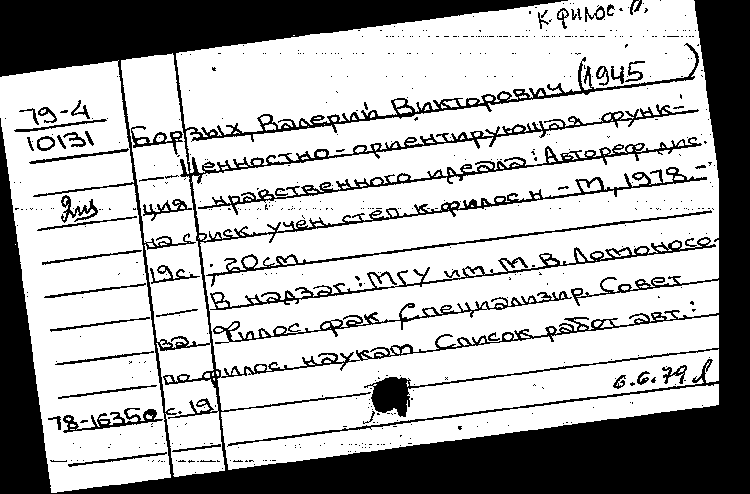 к. филос. н.
79-4
10131
Борзых, Валерий Викторович (1945 )
Ценностно-ориентирующая функ-
ция нравственного идеала: Автореф. дис.
на соиск. учен. степ. к. филос. н. - М., 1978. -
19 с. ; 20 см.
В надзаг.: МГУ им. М. В. Ломоносо-
ва. Филос. фак. Специализир. Совет
по филос. наукам. Список работ авт.:
с. 19
78-16350
6.6.79